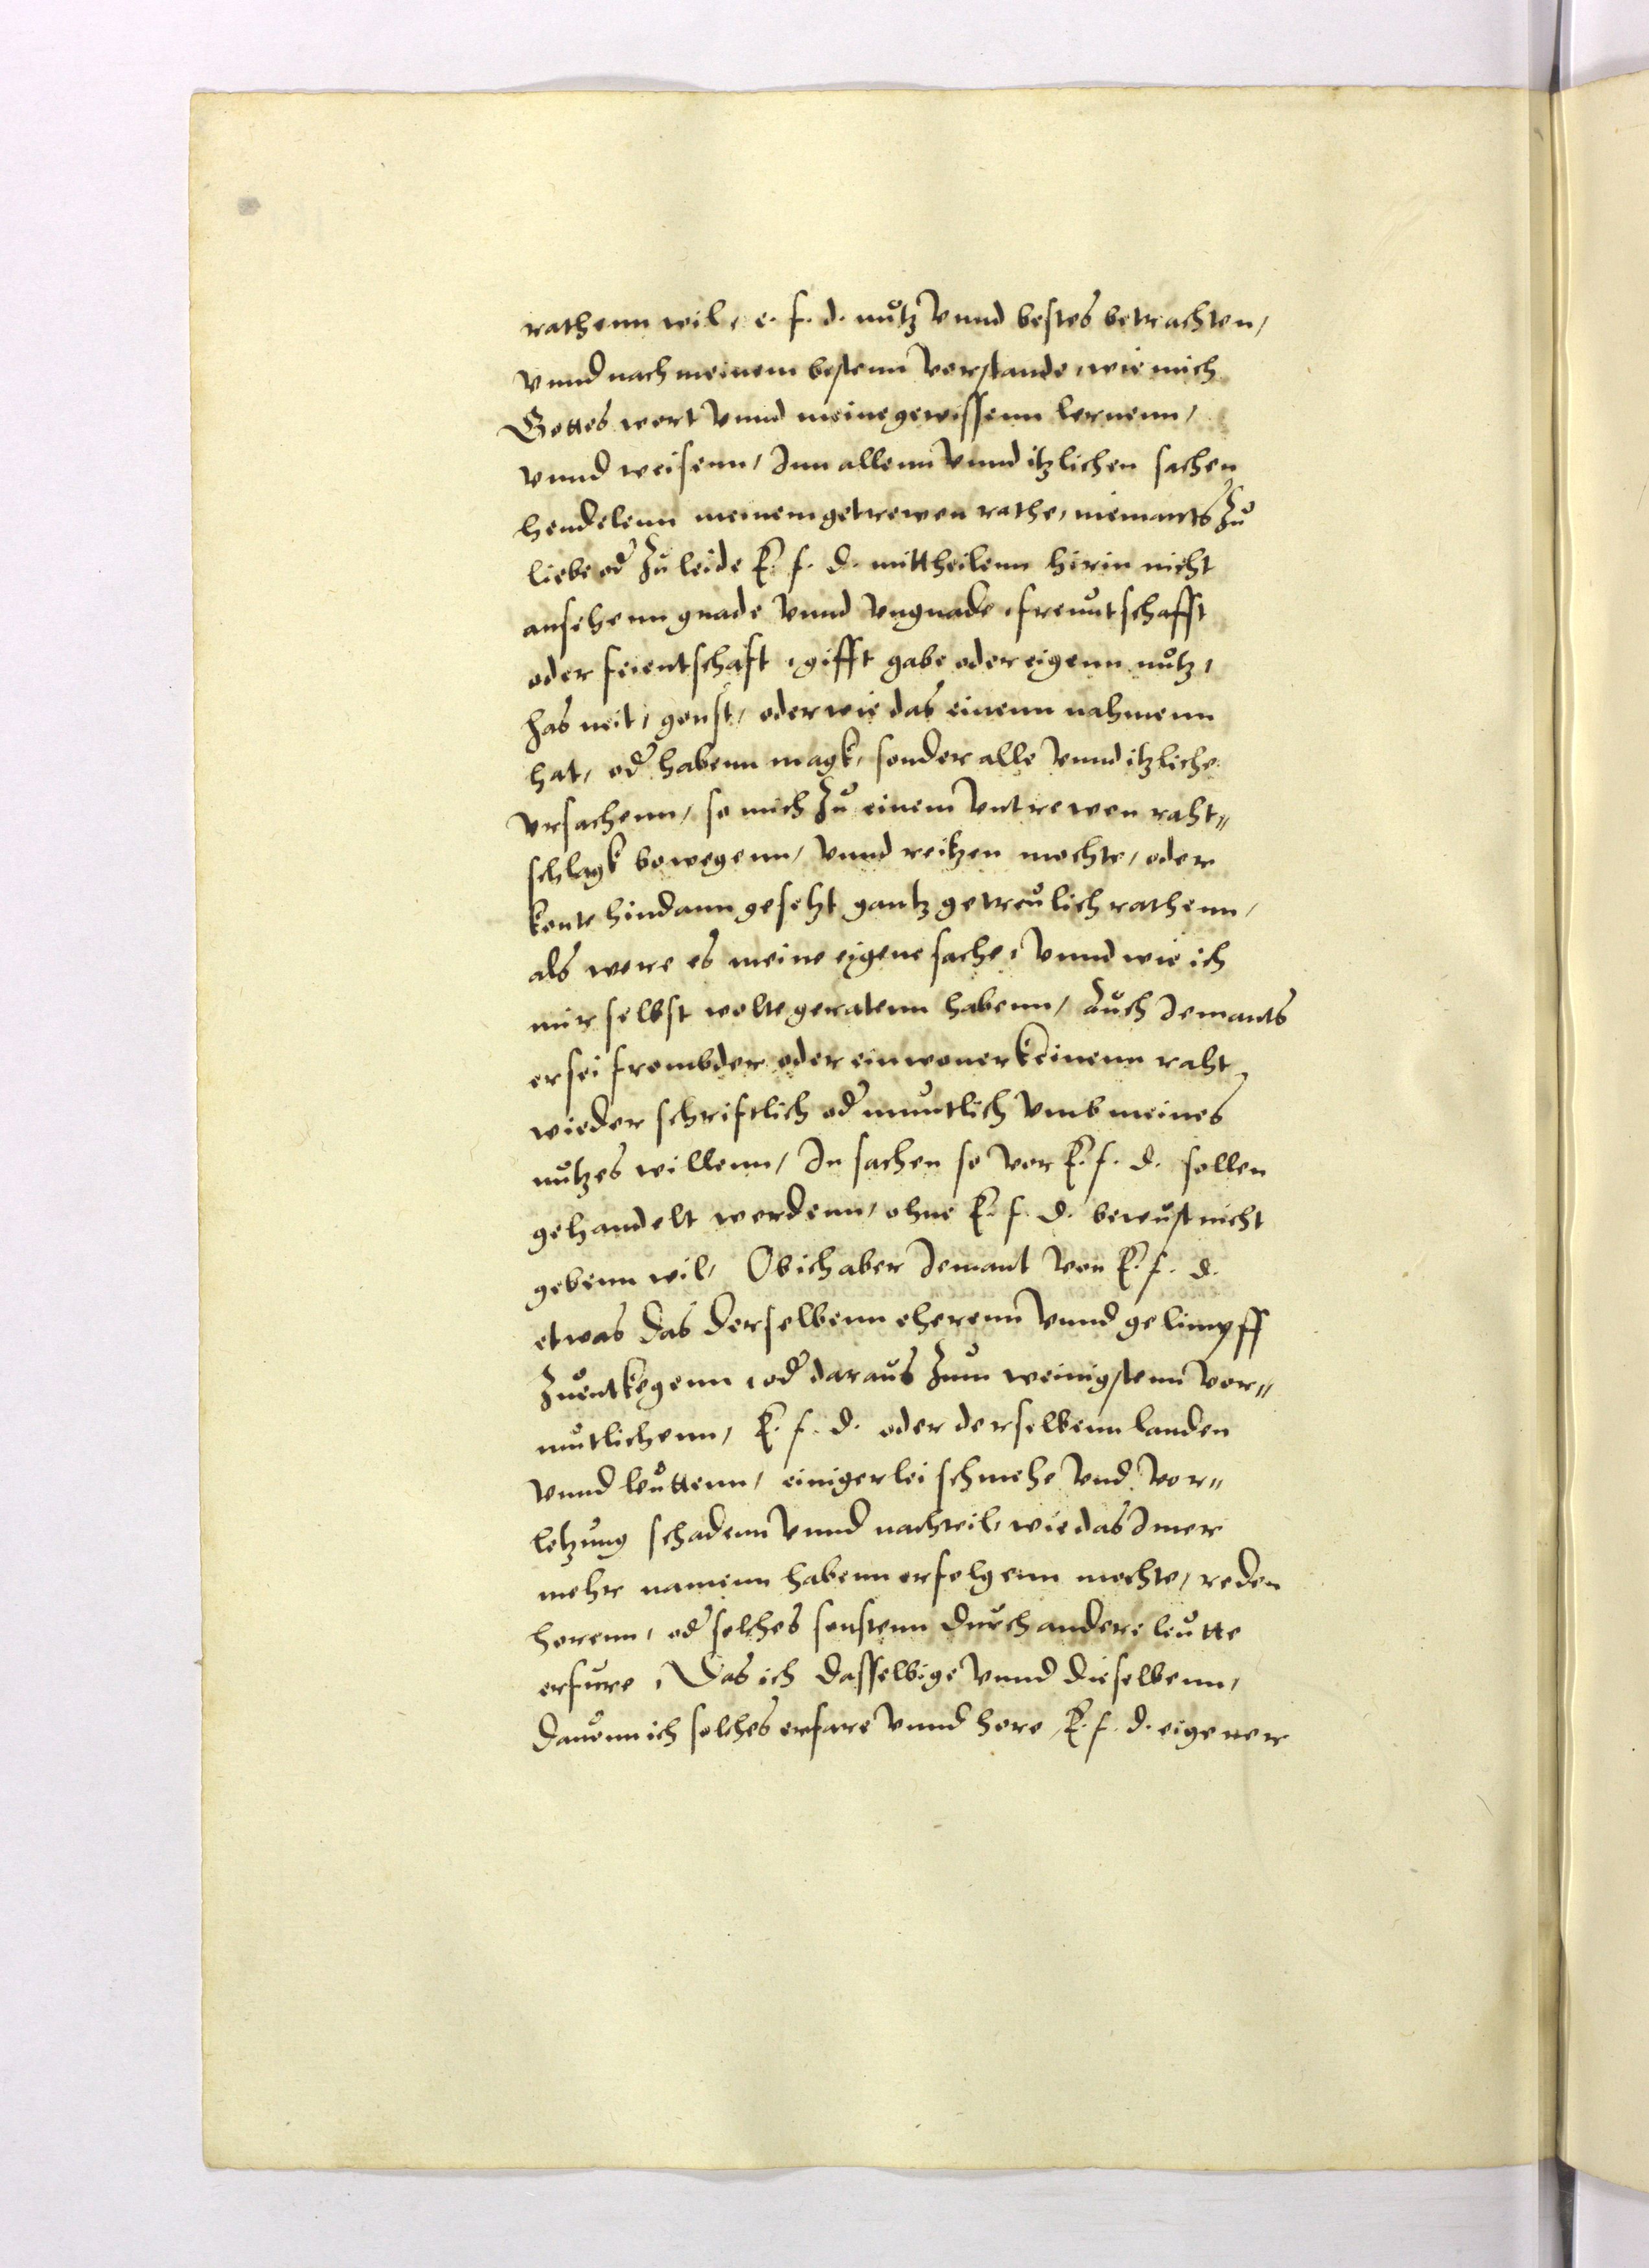 rathenn wil, e. f. d. nutz vnnd bestes betrachten,
vnnd nach meinem bestenn vorstande, wie mich
Gottes wort vnnd meine gewissenn lernenn,
vnnd weisenn, Inn allenn vnnd itzlichen sachen
hendelenn meinem getrewen rathe, niemants zu
liebe od zu leide E. f. d. mittheilenn hirin nicht
ansehenn gnade vnnd vngnade, freuntschafft
oder feientschaft, gifft gabe oder eigenn nutz,
has neit, gonst, oder wie das einenn nahmenn
hat, od habenn magk, sonder alle vnnd itzliche
vrsachenn, so mich zu einem vntrewen raht„
schlagk bowegenn, vnnd reitzen mochte, oder
konte hindann gesetzt gantz getreulich rathenn,
als were es meine eigene sache, vnnd wie ich
mir selbst wolte geratenn habenn, Auch Jemants
er sei frombder oder einwoner keinenn raht
wieder schriftlich od muntlich vmb meines
nutzes willenn, In sachen so vor E. f. d. sollen
gehandelt werdenn, ohne E. f. d. bewust nicht
gebenn wil, Ob ich aber Jemant von E. f. d.
etwas das derselbenn eherenn vnnd gelimpff
zuentkegenn, od daraus zum weinigstenn vor„
mutlichenn, E. f. d. oder derselbenn landen
vnnd leuttenn, einigerlei schmehe vnd vor„
letzung schadenn vnnd nachteil, wie das Imer
mehr namenn habenn erfolgenn mochte, reden
horenn, od solches sonstenn durch andere leutte
erfure, Das ich dasselbige vnnd dieselbenn,
dauonn ich solches erfare vnnd hore, E. f. d. eigener